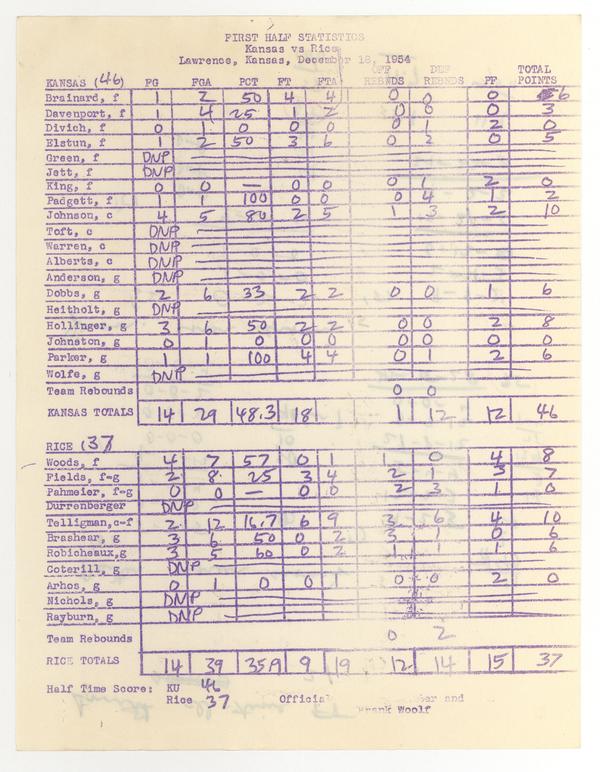 FIRST HALF STATISTICS
Kansas vs Rice
Lawrence, Kansas, December 18, 1954
KANSAS (46) FG FGA PCT FT FTA OFF REBNDS DEF REBNDS PF TOTAL POINTS
Brainard, f 1 2 50 4 4 0 0 0 6
Davenport, f 1 4 25 1 2 0 0 0 3
Divich, f 0 1 0 0 0 0 1 2 0
Elstun, f 1 2 50 3 6 0 2 0 5
Green, f DNP
Jett, f DNP
King, f 0 0 — 0 0 0 1 2 0
Padgett, f 1 1 100 0 0 0 4 1 2
Johnson, c 4 5 80 2 5 1 3 2 10
Toft, c DNP
Warren, c DNP
Alberts, c DNP
Anderson, g DNP
Dobbs, g 2 6 33 2 2 0 0 1 6
Heitholt, g DNP
Hollinger, g 3 6 50 2 2 0 0 2 8
Johnston, g 0 1 0 0 0 0 0 0 0
Parker, g 1 1 100 4 4 0 1 2 6
Wolfe, g DNP
Team Rebounds 0 0
KANSAS TOTALS 14 29 48.3 18 1 12 12 46
RICE (37
Woods, f 4 7 57 0 1 1 0 4 8
Fields, f-g 2 8 25 3 4 2 1 3 7
Pahmeier, f-g 0 0 — 0 0 2 3 1 0
Durrenberger DNP
Telligman, c-f 2 12 16.7 6 9 3 6 4 10
Brashear, g 3 6 50 0 2 3 1 0 6
Robicheaux, g 3 5 60 0 2 1 1 1 6
Coterill, g DNP
Arhos, g 0 1 0 0 1 0 0 2 0
Nichols, g DNP
Rayburn, g DNP
Team Rebounds 0 2
RICE TOTALS 14 39 35.9 9 19 12 14 15 37
Half Time Score: KU 46
Rice 37 Official and
Woolf